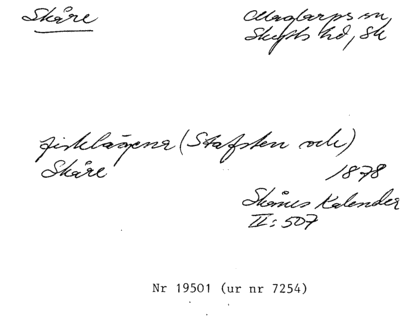 Skåre
Maglarps sn,
Skytts hd, Sk
fisklägena (Stafsten och)
Skåre
1878
Skånes Kalender
II: 507
Nr 19501 (ur nr 7254)